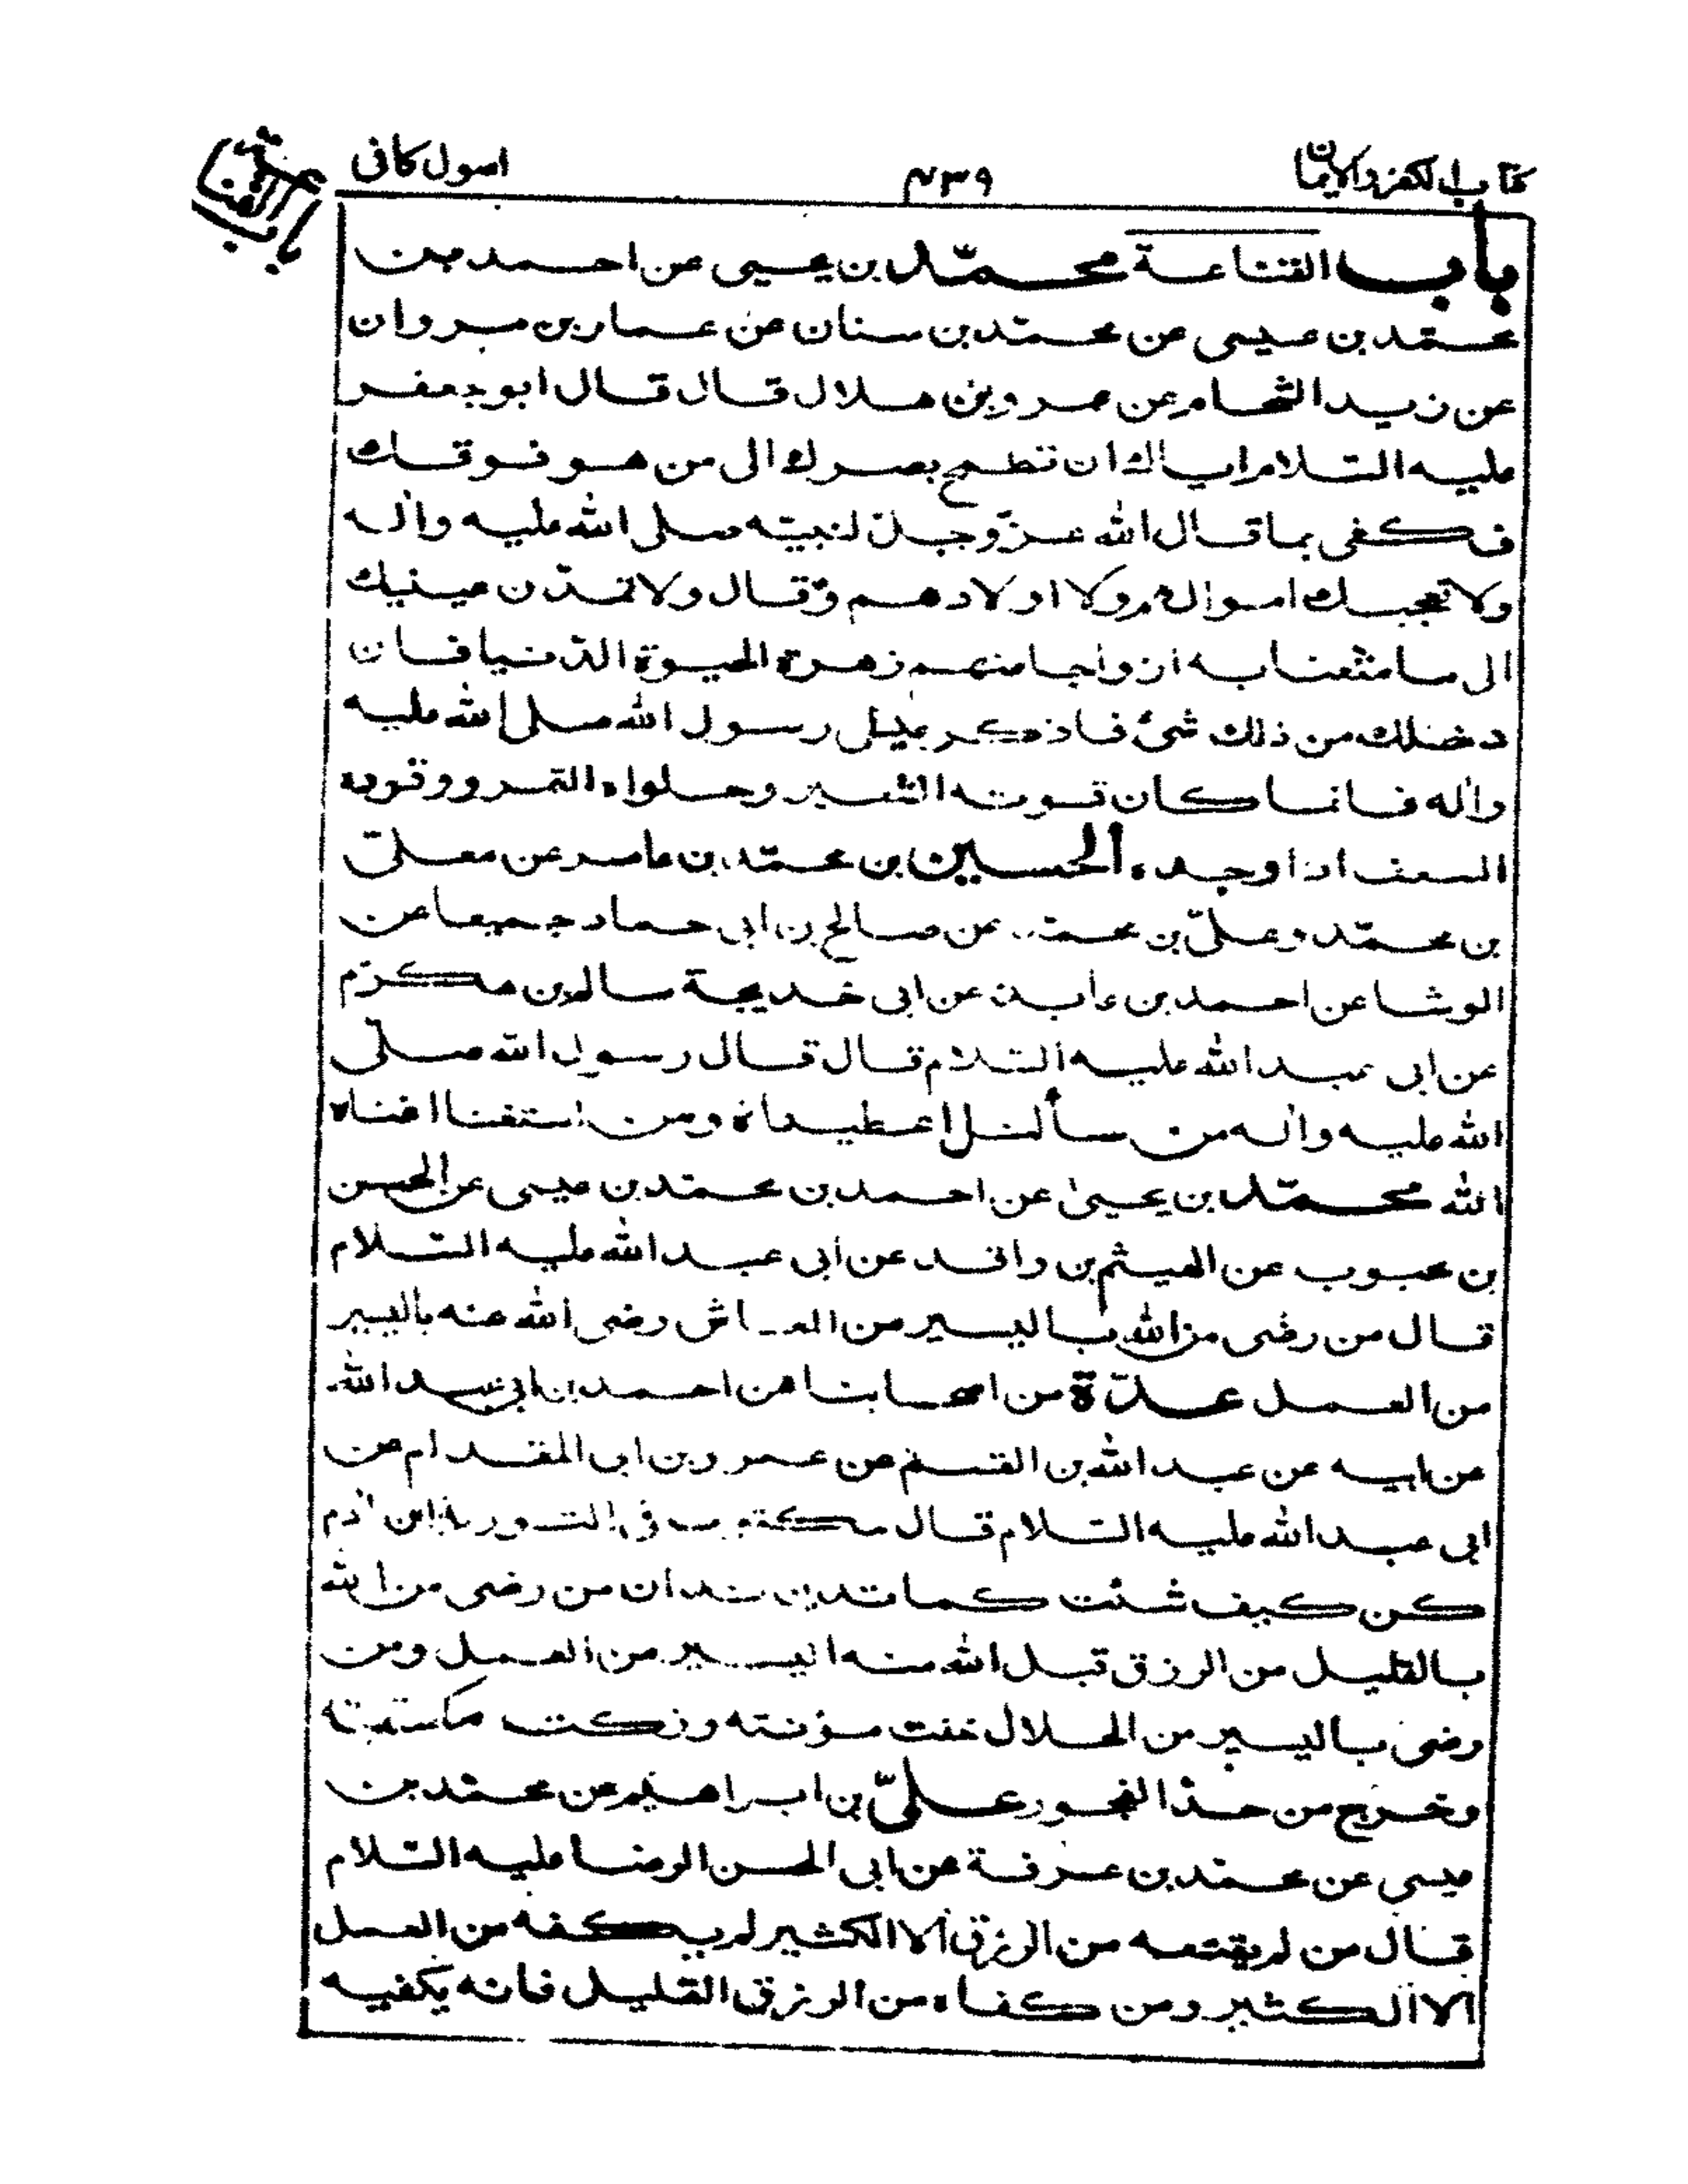 كتاب الكفر والايمان
۴۳۹
اسول كافى
باب القناعة
باب القناعة محمّد بن يحيى عن احمد بن
محمّد بن عيسى عن محمّد بن سنان عن عمار بن مروان
عن زيد الشحام عن عمرو بن هلال قال قال ابو جعفر
عليه السّلام اياك ان تطمح بصرك الى من هو فوقك
فكفى بما قال الله عزّ وجلّ لنبيّه صلى الله عليه واٰله
ولا تعجبك اموالهم ولا اولادهم وقال ولا تمدّن عينيك
الى ما متّعنا به ازواجا منهم زهرة الحيوة الدّنيا فان
دخلك من ذلك شئ فاذكر عيش رسول الله صلى الله عليه
واٰله فانما كان قوته الشعير وحلواه التمر ووقوده
السعف اذا وجده الحسين بن محمّد بن عامر عن معلّى
بن محمّد وعلىّ بن محمّد عن صالح بن ابى حماد جميعا عن
الوشا عن احمد بن عايذ عن ابى خديجة سالم بن مكرّم
عن ابى عبد الله عليه السّلام قال قال رسول الله صلّى
الله عليه واٰله من سألنا اعطيناه ومن استغنا اغناه
الله محمّد بن يحيىٰ عن احمد بن محمّد بن عيسى عن الحسن
بن محبوب عن الهيثم بن واقد عن ابى عبد الله عليه السّلام
قال من رضى من الله باليسير من المعاش رضى الله عنه باليسير
من العمل عدّة من اصحابنا عن احمد بن ابى عبد الله
عن ابيه عن عبد الله بن القسم عن عمرو بن ابى المقدام عن
ابى عبد الله عليه السّلام قال مكتوب فى التورية ابن اٰدم
كن كيف شئت كما تدين تدان من رضى من الله
بالقليل من الرزق قبل الله منه اليسير من العمل ومن
رضى باليسير من الحلال خفت مؤنته وزكت مكسبته
وخرج من حدّ الفجور علىّ بن ابراهيم عن محمّد بن
عيسى عن محمّد بن عرفة عن ابى الحسن الرضا عليه السّلام
قال من لم يقنعه من الرزق الا الكثير لم يكفه من العمل
الا الكثير ومن كفاه من الرزق القليل فانه يكفيه